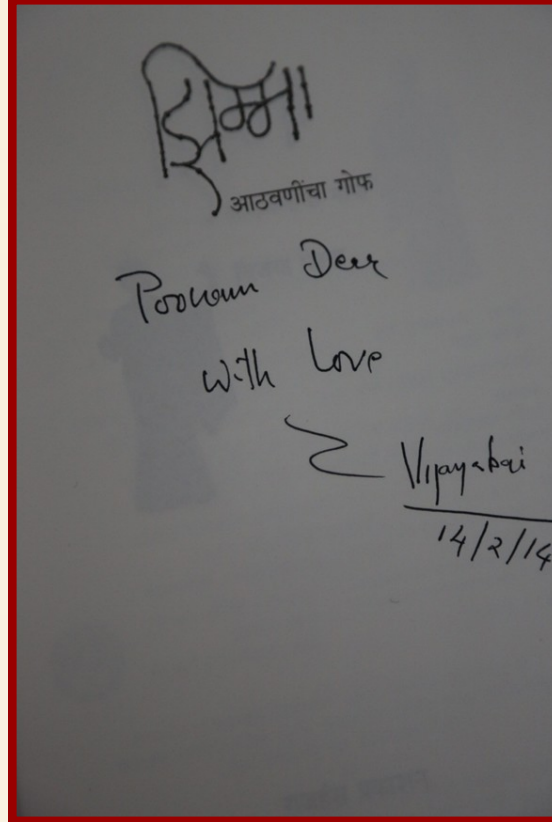 झिम्मा
आठवणींचा गोफ
Poonam Dear
with Love
Vijayabai
14/2/14